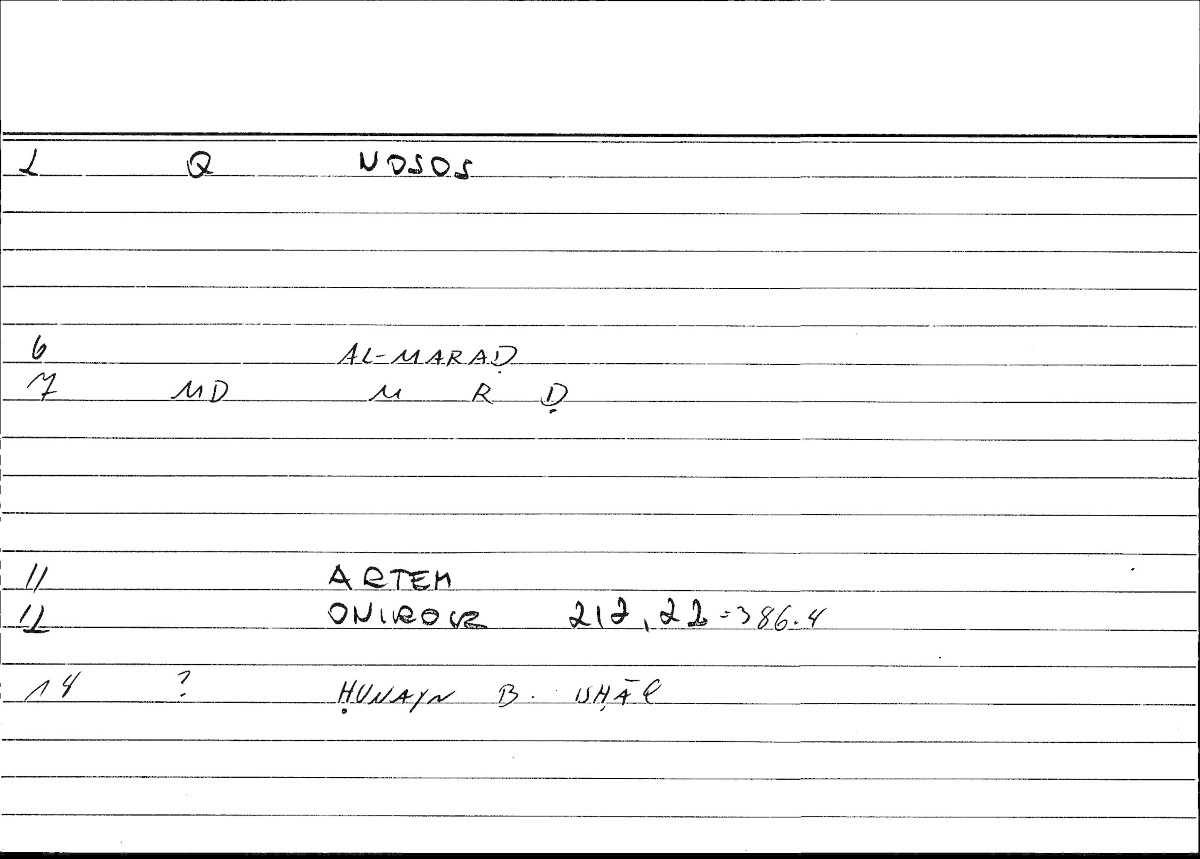 1 Q NOSOS
6 AL-MARAḌ
7 MD M R Ḍ
11 ARTEM
12 ONIROCR 212,22=386.4
14 ? ḤUNAYN B. ISḤĀQ